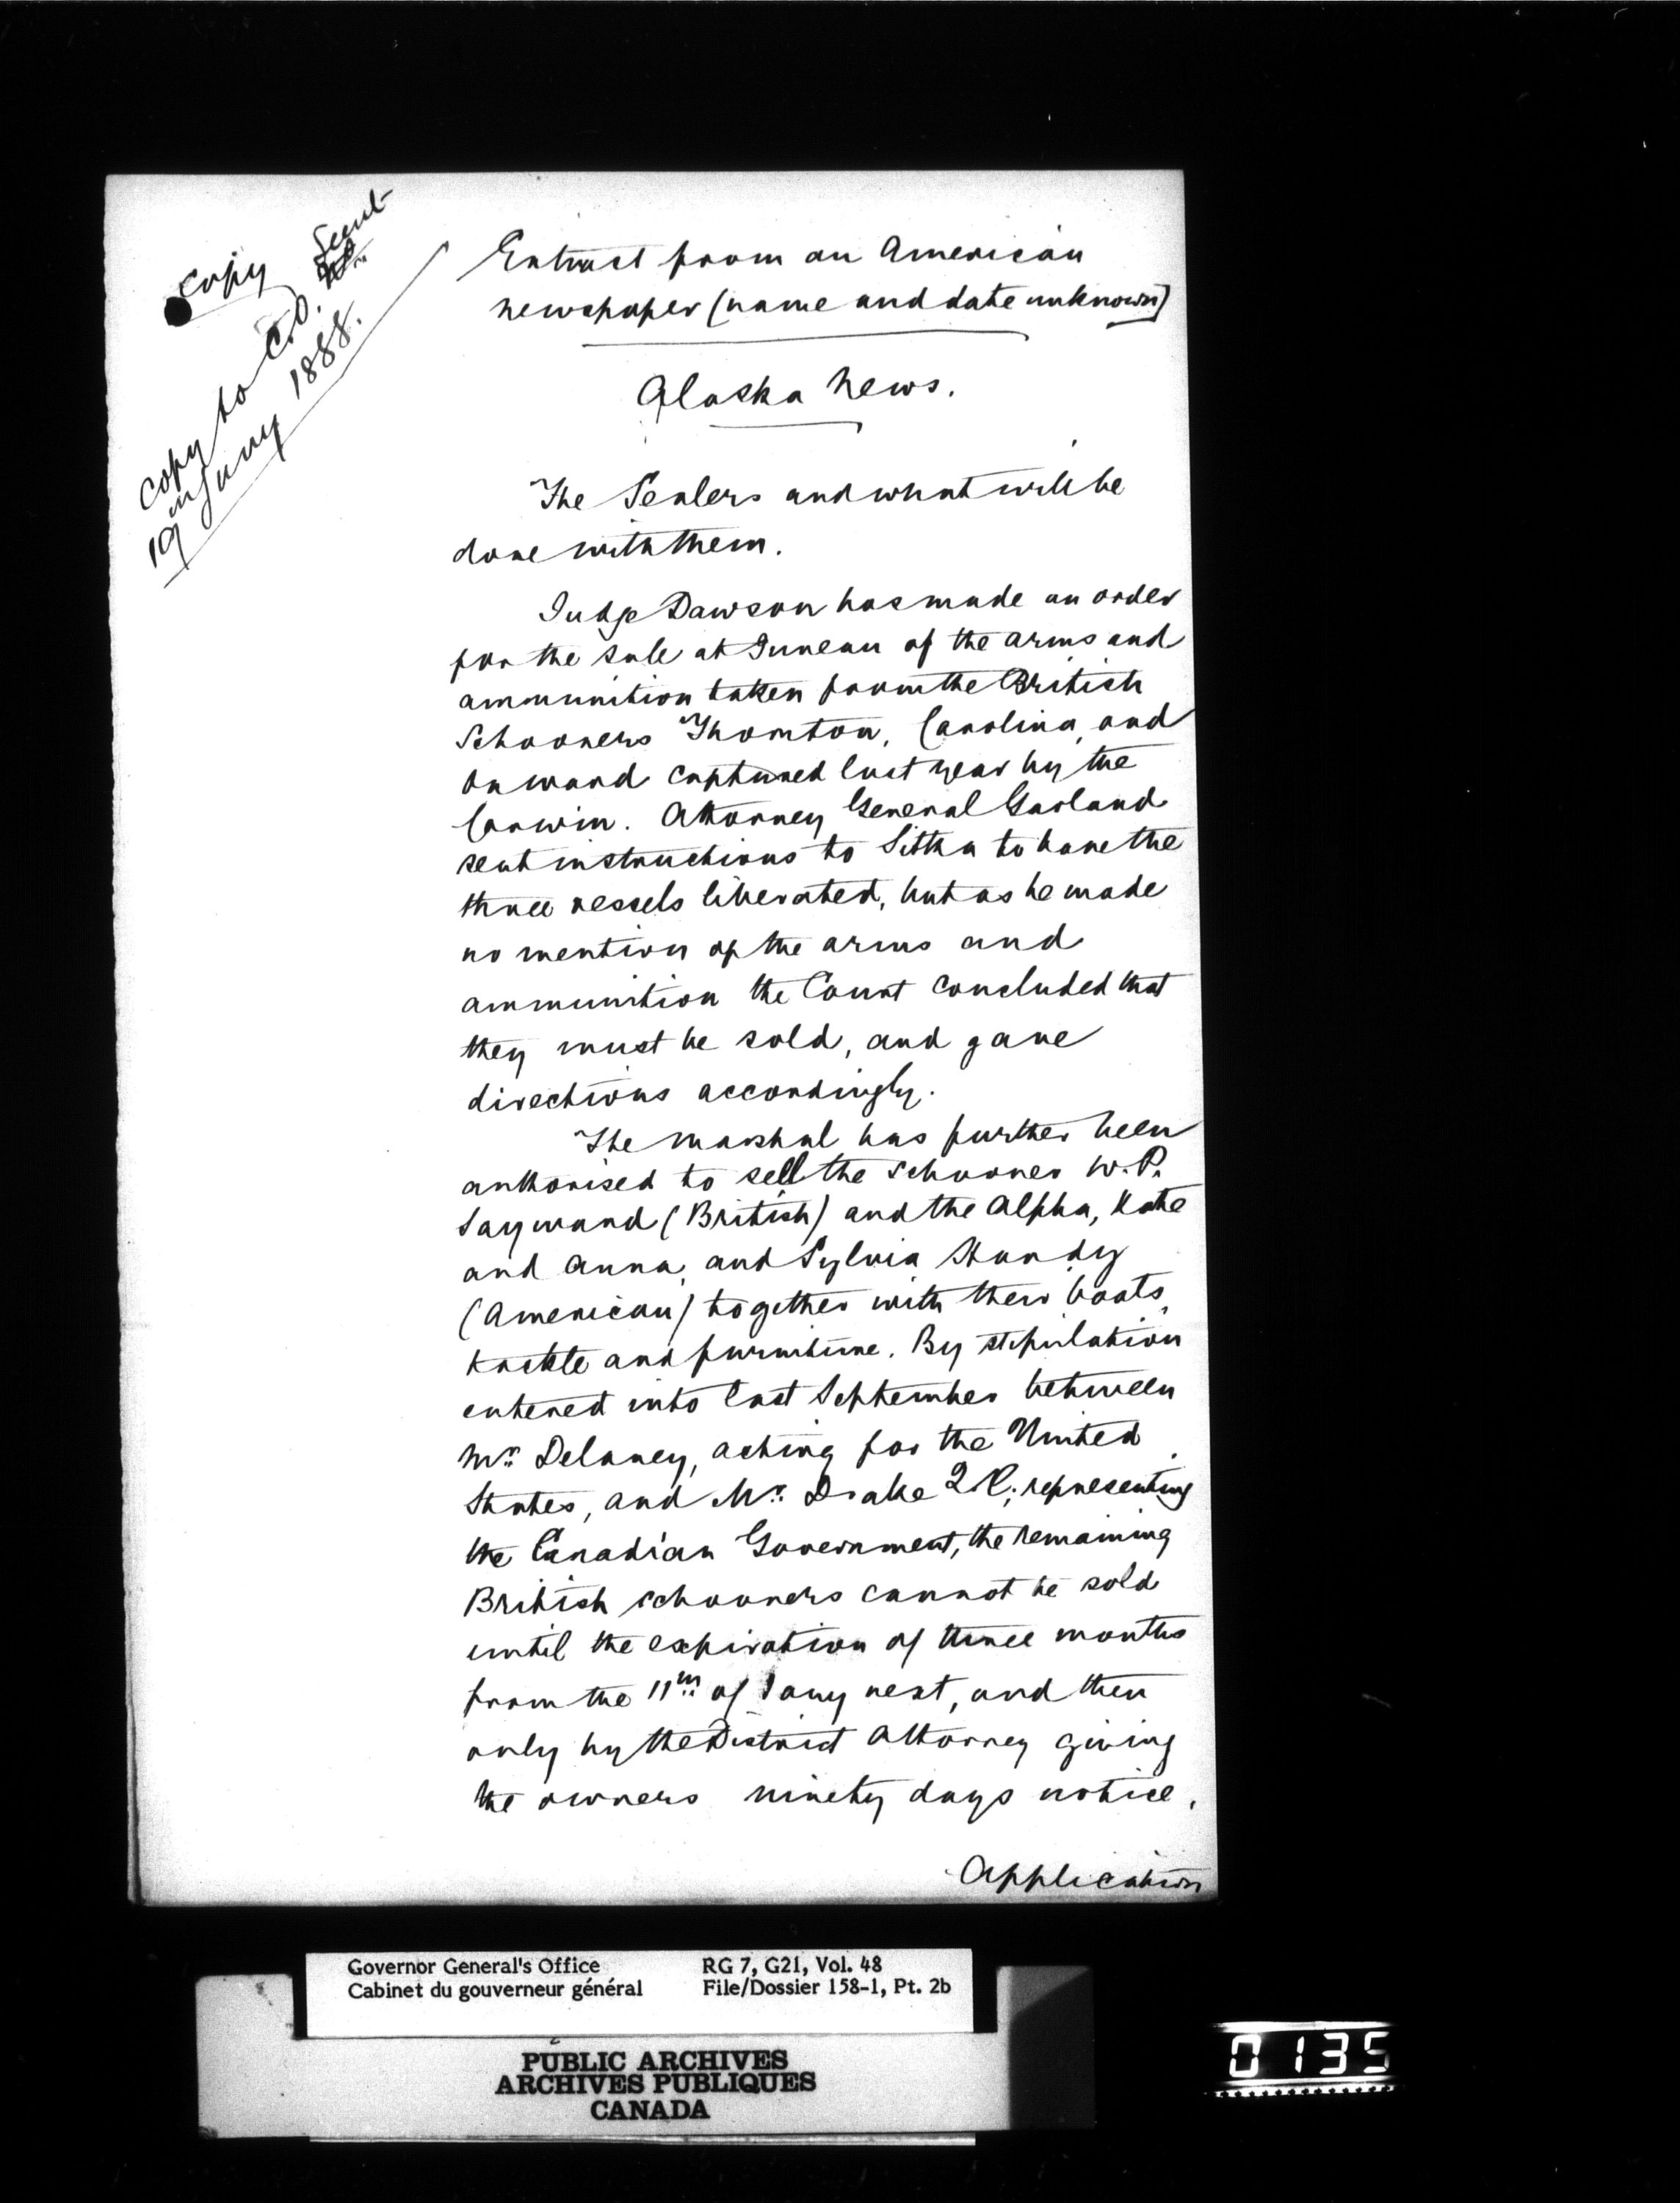 Copy
Copy to C.O. Secret
in
19 Jany 1888.
Extract from an American
newspaper (name and date unknown)
Alaska News.
The Sealers and what will be
done with them.
Judge Dawson has made an order
for the sale at Juneau of the arms and
ammunition taken from the British
Schooners Thornton, Carolina, and
Onward captured last year by the
Corwin. Attorney General Garland
sent instructions to Sitka to have the
three vessels liberated, but as he made
no mention of the arms and
ammunition the Court concluded that
they must be sold, and gave
directions accordingly.
The marshal has further been
authorised to sell the schooner W.P.
Sayward (British) and the Alpha, Kate
and Anna, and Sylvia Handy
(American) together with their boats,
tackle and furniture. By stipulation
entered into last September between
Mr. Delaney, acting for the United
States, and Mr. Drake Q.C; representing
the Canadian Government, the remaining
British schooners cannot be sold
until the expiration of three months
from the 11th of Jany next, and then
only by the District Attorney giving
the owners ninety days notice.
Application
Governor General's Office RG 7, G21, Vol. 48
Cabinet du gouverneur général File/Dossier 158-1, Pt. 2b
PUBLIC ARCHIVES
ARCHIVES PUBLIQUES
CANADA
0135